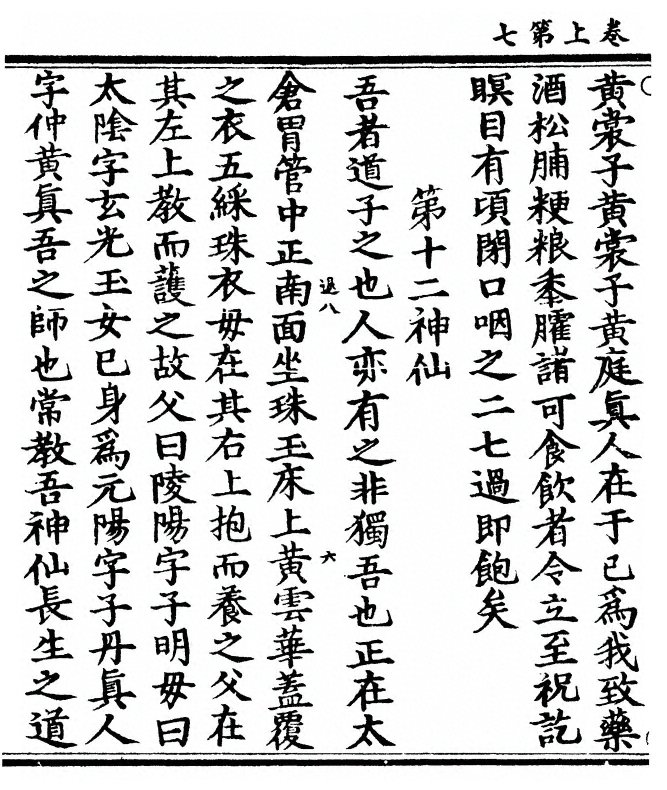 卷上第七
黄裳子黄裳子黄庭真人在于己爲我致藥
酒松脯粳粮黍臛諸可食飲者令立至祝訖
瞑目有頃閉口咽之二七過即飽矣
第十二神仙
吾者道子之也人亦有之非獨吾也正在太
倉胃管中正南面坐珠玉床上黄雲華蓋覆
退八
六
之衣五綵珠衣毋在其右上抱而養之父在
其左上教而護之故父曰陵陽字子明毋曰
太陰字玄光玉女已身爲元陽字子丹真人
字仲黄真吾之師也常教吾神仙長生之道